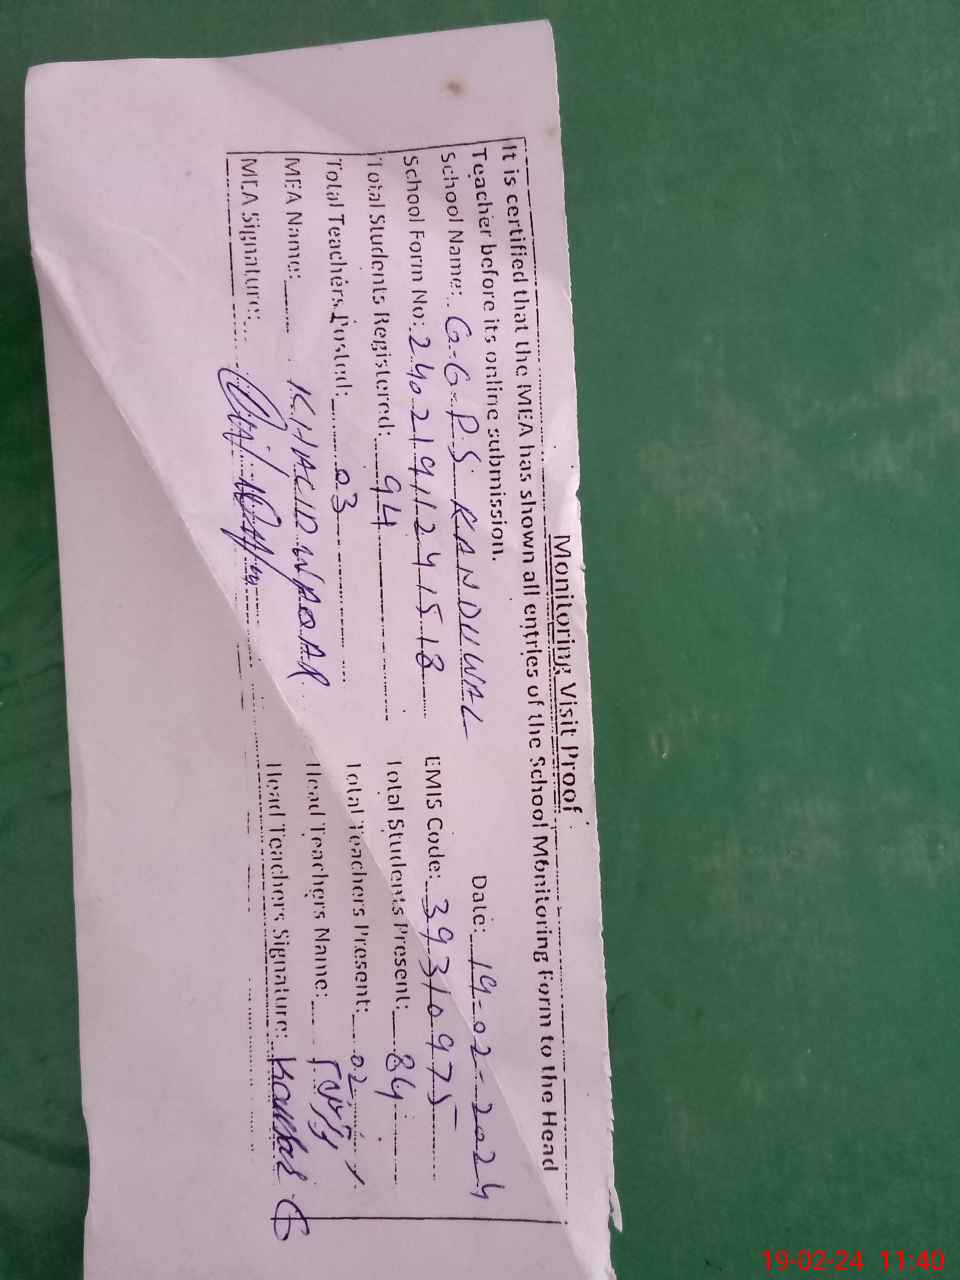 Monitoring Visit Proof
It is certified that the MEA has shown all entries of the School Monitoring Form to the Head
Teacher before its online submission. Date: 19-02-2024
School Name: G.G.P.S KANDUWAL
School Form No: 24021911241518 EMIS Code: 39310975
Total Students Registered: 94 Total Students Present: 84
Total Teachers Posted: 03 Total Teachers Present: 02
MEA Name: Head Teachers Name:
MEA Signature: Head Teachers Signature: Kausar
19-02-24 11:40